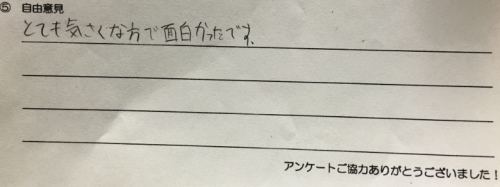 ⑤ 自由意見
とても気さくな方で面白かったです。
アンケートご協力ありがとうございました！